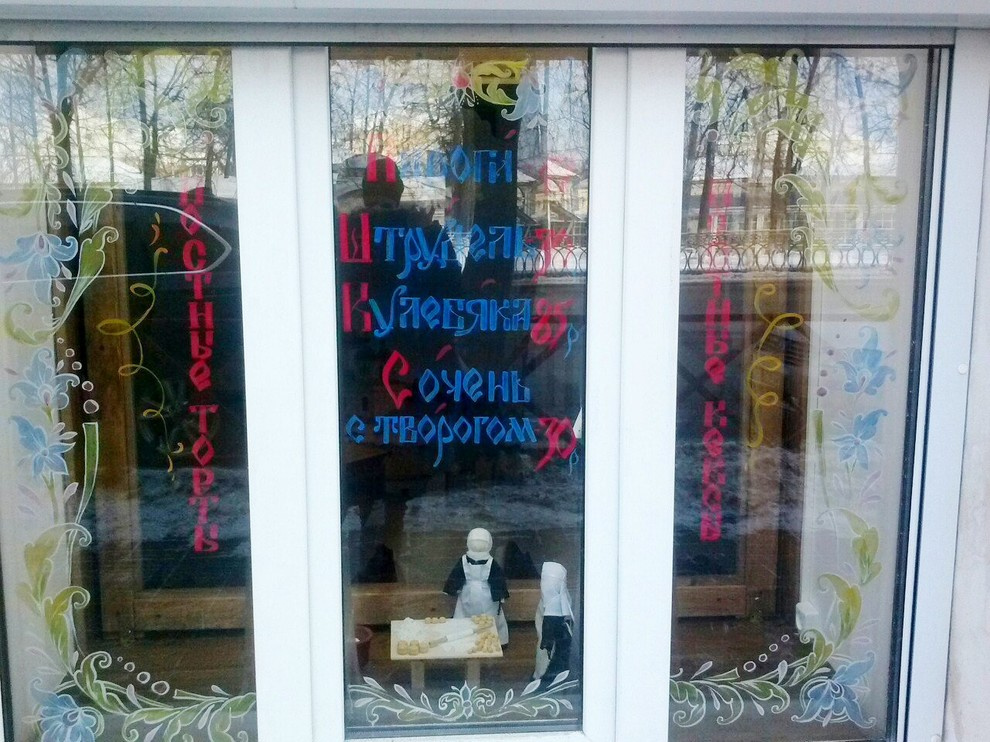 ПОСТНЫЕ ТОРТЫ
Пироги
Штрудель
Кулебяка 85р
Сочень
с творогом 30р
ПОСТНЫЕ КЕКСЫ